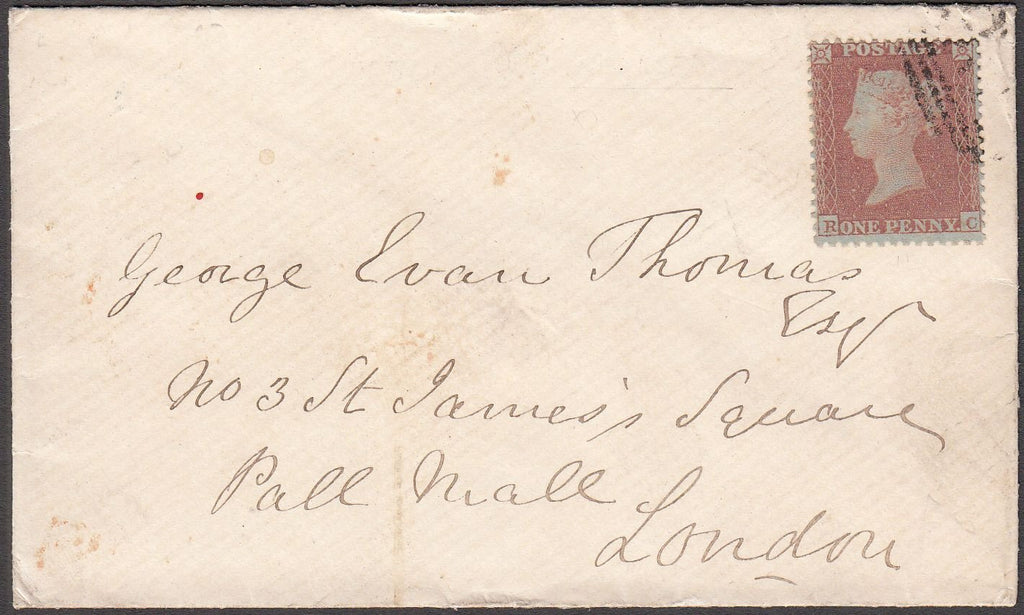 POSTAGE
R ONE PENNY. C
George Evan Thomas
Esqr
No 3 St James's Square
Pall Mall
London